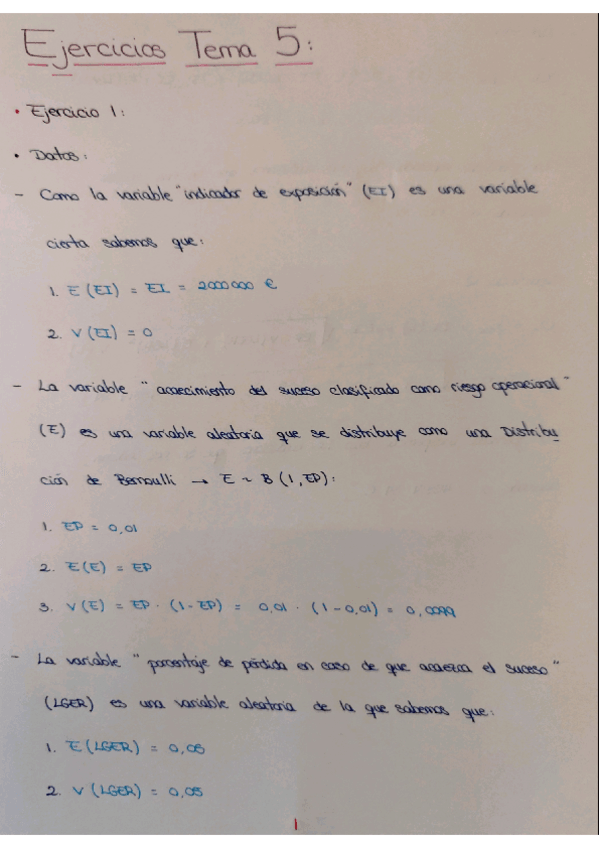 Ejercicios Tema 5:
• Ejercicio 1:
• Datos:
- Como la variable "indicador de exposición" (EI) es una variable
cierta sabemos que:
1. E (EI) = EI = 2000000 €
2. V (EI) = 0
- La variable "acaecimiento del suceso clasificado como riesgo operacional"
(E) es una variable aleatoria que se distribuye como una Distribu
ción de Bernoulli → E ~ B (1, EP):
1. EP = 0,01
2. E(E) = EP
3. V(E) = EP · (1-EP) = 0,01 · (1-0,01) = 0,0099
- La variable "porcentaje de pérdida en caso de que acaezca el suceso"
(LGER) es una variable aleatoria de la que sabemos que:
1. E (LGER) = 0,05
2. V (LGER) = 0,05
1